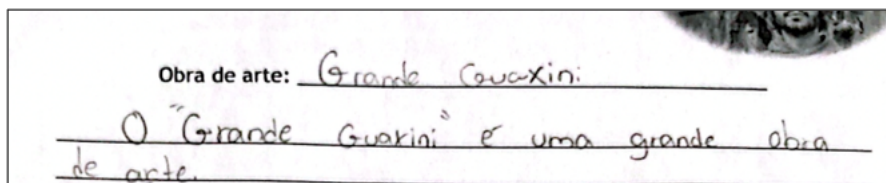 Obra de arte: Grande Guaxini
O "Grande Guaxini" é uma grande obra
de arte.